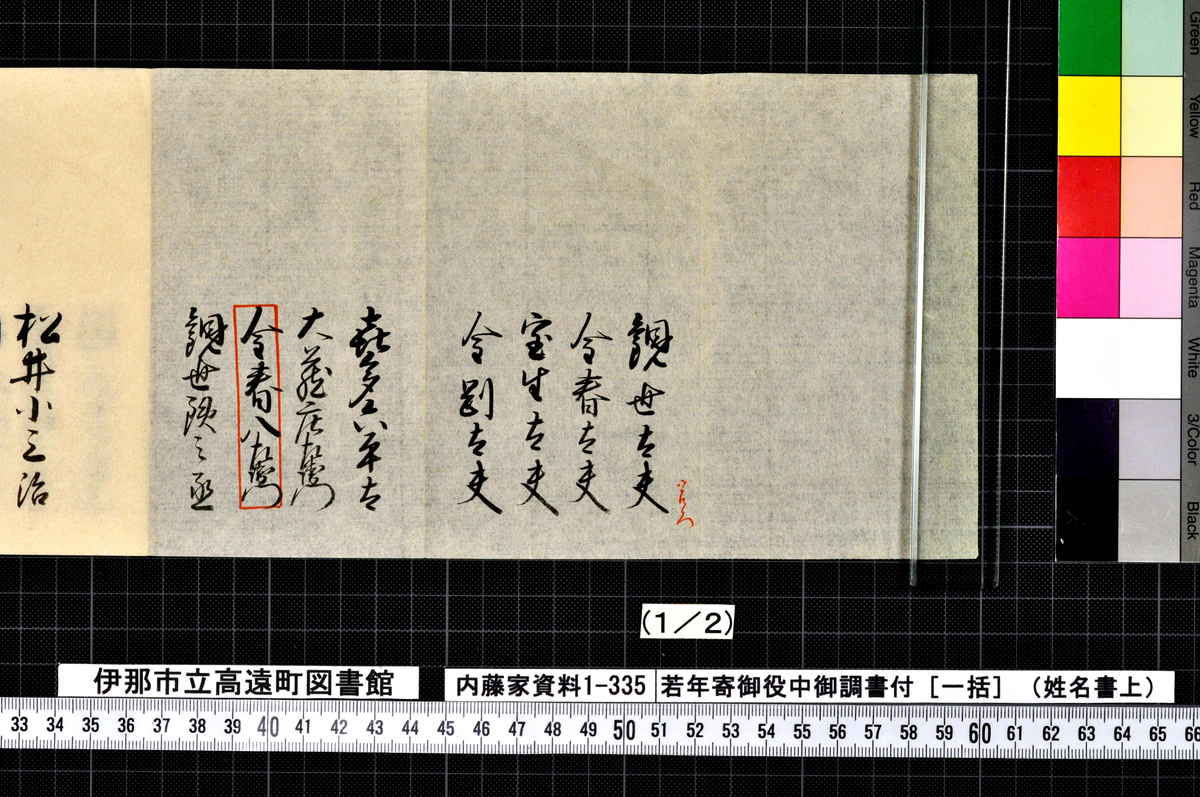 観世太夫
金春太夫
宝生太夫
金剛太夫
喜多六平太
大蔵庄左衛門
金春八左衛門
観世銕之丞
松井小三治
(1/2)
伊那市立高遠町図書館
内藤家資料1-335 若年寄御役中御調書付［一括］（姓名書上）
33 34 35 36 37 38 39 40 41 42 43 44 45 46 47 48 49 50 51 52 53 54 55 56 57 58 59 60 61 62 63 64 65 66
Green
Yellow
Red
Magenta
White
3/Color
Black